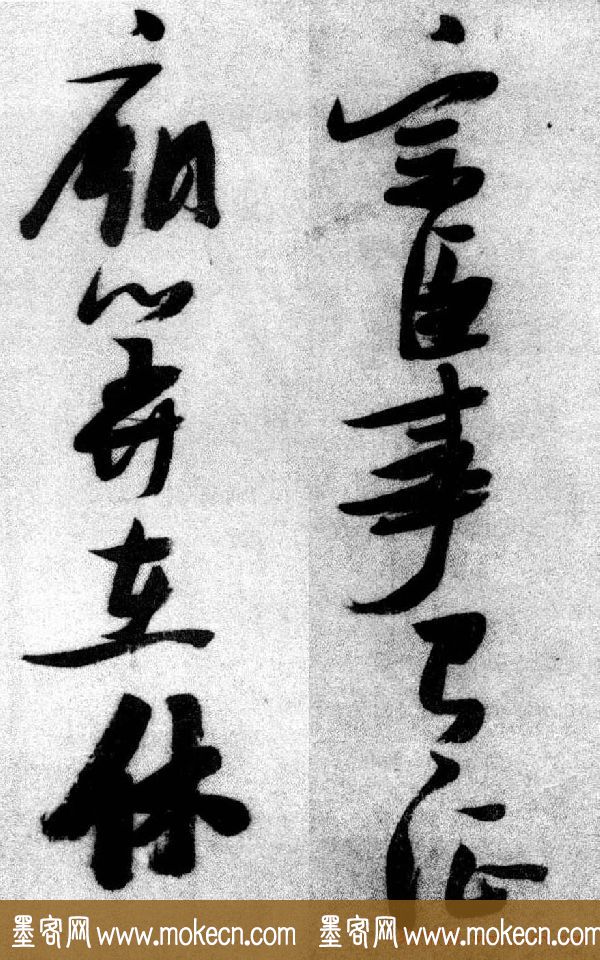 宗臣事有征
廟筭在休
墨客网 www.mokecn.com 墨客网 www.mokecn.com